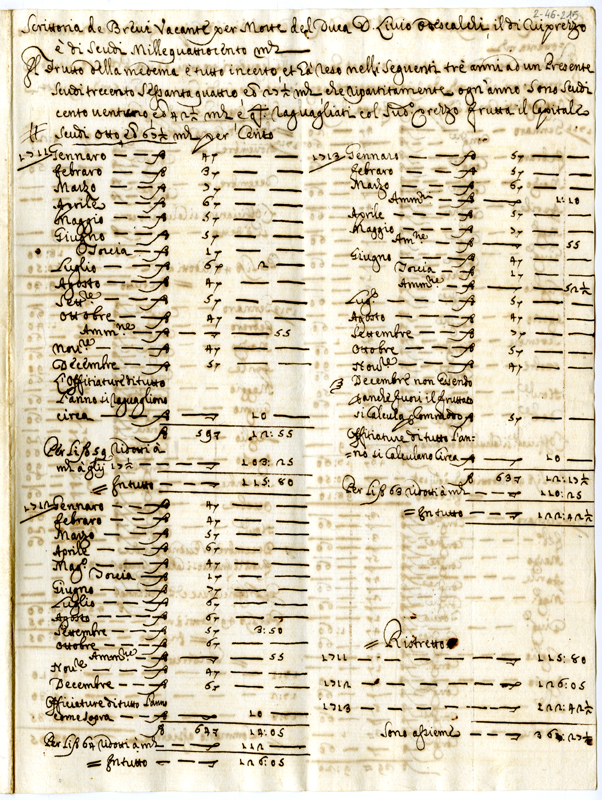 2-46-215
Scrittoria de Brevi Vacante per Morte del Duca D. Livio Odescalchi il di cui prezzo
è di Scudi Millequattrocento m.ta
Il frutto della medema è tutto incerto et hà reso nelli seguenti trè anni ad un Presente
Scudi trecento sessanta quattro ed 27½ m.ta che ripartitamente ogn'anno sono scudi
cento ventuno ed 42½ m.ta è qti. raguagliati col suo prezzo frutta il Capitale
Scudi otto ed 67½ m.ta per Cento
1711 Gennaro — 47 — —
Febraro — 37 — —
Marzo — 57 — —
Aprile — 67 — —
Maggio — 57 — —
Giugno — 57 — —
Torcia — 17 — —
Luglio — 67 2 —
Agosto — 47 — —
Sett.re — 57 — —
Ottobre — 47 — —
Amm.ne — — 55
Nov.re — 47 — —
Decembre — 57 — —
L'Offitiature di tutto
L'anno si raguagliono
circa — 10 —
597 12:55
Per Li 59 Ridotti à
m.ta à gli 17½ — 103:25
= In tutto — 115:80
1712 Gennaro — 47 — —
Febraro — 47 — —
Marzo — 57 — —
Aprile — 67 — —
Mag.o — 47 — —
Torcia — 17 — —
Giugno — 37 — —
Luglio — 67 — —
Agosto — 67 — —
Settembre — 57 3:50
Ottobre — 67 — —
Amm.ne — — 55
Nov.re — 47 — —
Decembre — 65 — —
Offitiature di tutto l'anno
come sopra — 10 —
647 14:05
Per Li 64 Ridotti à m.ta — 112 —
= In tutto — 126:05
1713 Gennaro — 57 — —
Febraro — 57 — —
Marzo — 67 — —
Amm.ne — — 1:10
Aprile — 57 — —
Maggio — 57 — —
Amm.ne — — 55
Giugno — 47 — —
Torcia — 17 — —
Amm.ne — — 52½
Lug.o — 57 — —
Agosto — 47 — —
Settembre — 37 — —
Ottobre — 57 — —
Nov.re — 47 — —
Decembre non essendo
fuori il fruttato
si Calcula — 57 — —
Offitiature di tutto l'an-
=no si Calculano Circa — 10 —
637 12:17½
Per Li 63 Ridotti à m.ta — 110:25
= In tutto — 122:42½
= Ristretto
1711 — 115:80
1712 — 126:05
1713 — 122:42½
Sono assieme — 364:27½